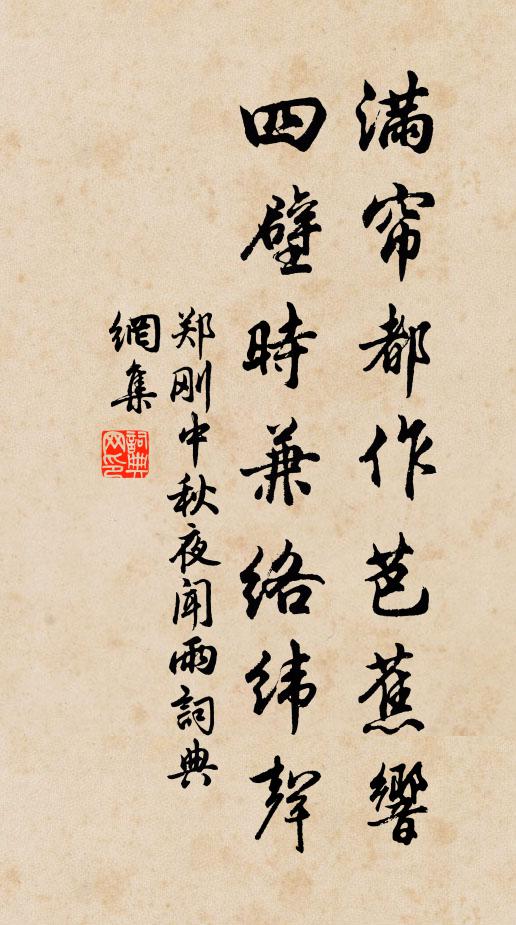 满帘都作芭蕉響
四壁時兼络纬聲
郑刚中秋夜闻雨詞典
網集
詞典网印